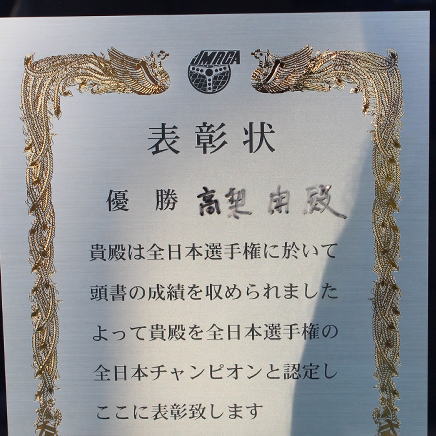 JMRCA
表彰状
優勝 高梨 由 殿
貴殿は全日本選手権に於いて
頭書の成績を収められました
よって貴殿を全日本選手権の
全日本チャンピオンと認定し
ここに表彰致します